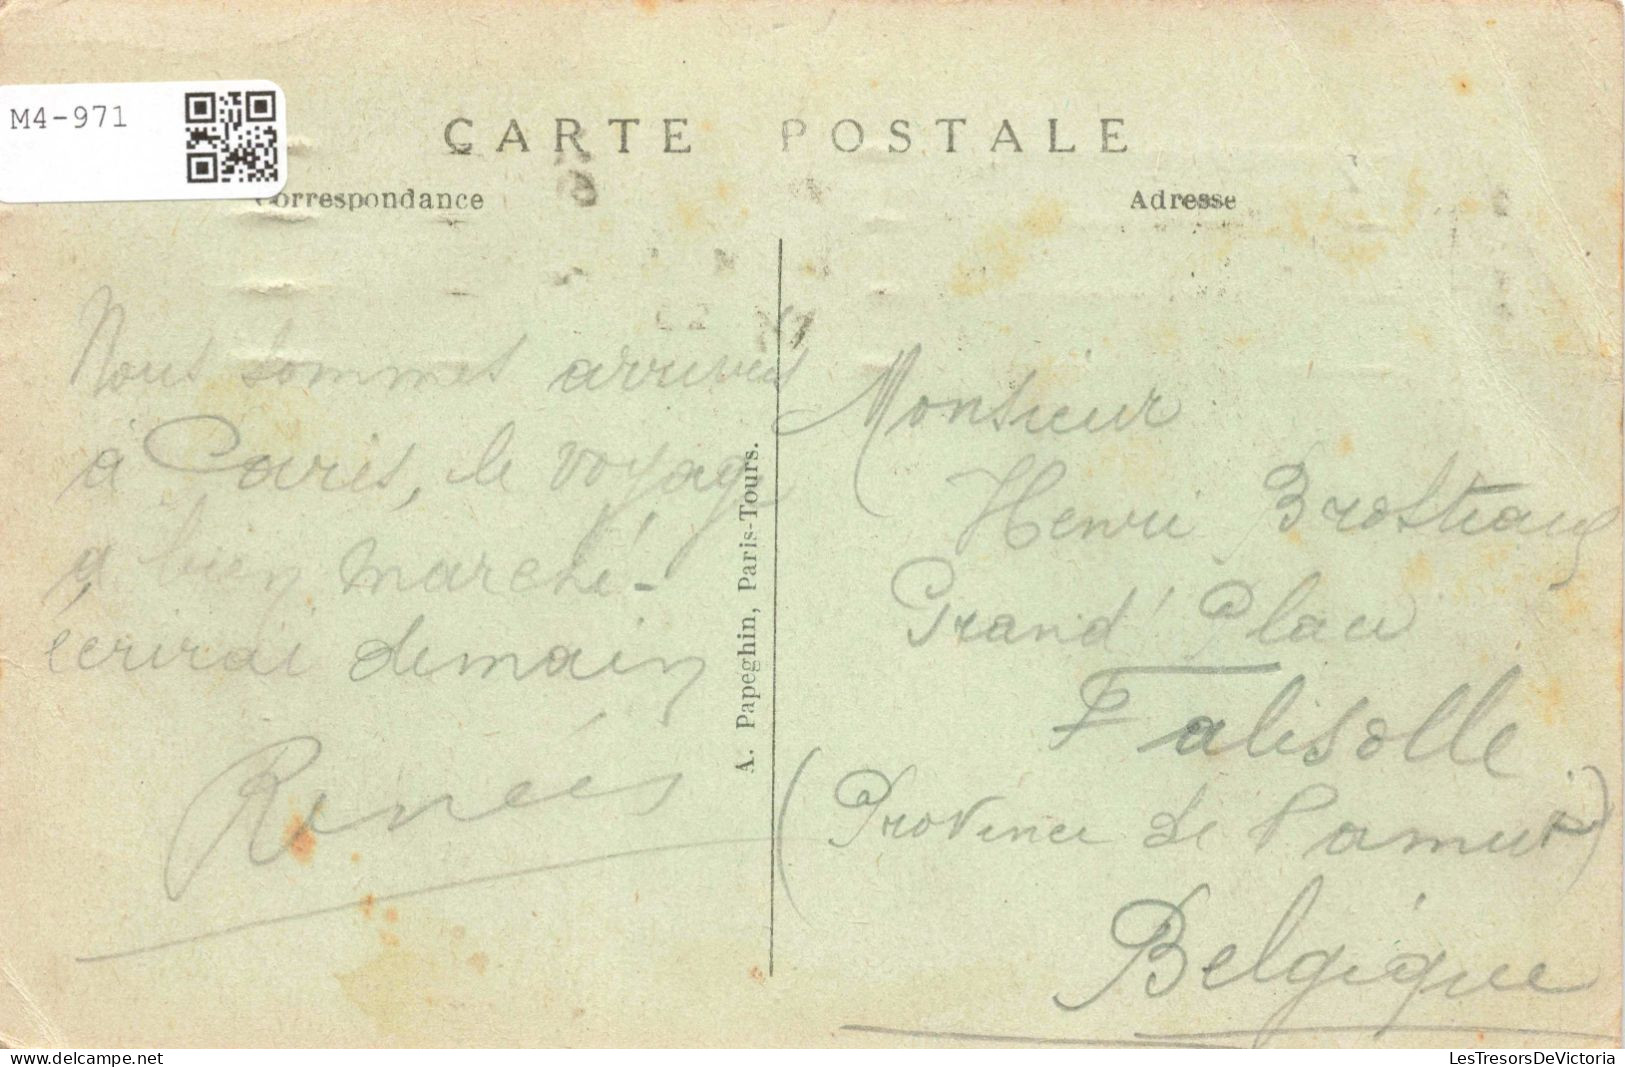 M4-971
CARTE POSTALE
Correspondance
Adresse
Nous sommes arrivés
à Paris, le voyage
a bien marché -
écrirai demain
A. Papeghin, Paris-Tours.
Monsieur
Henri
Grand' Place
Falisolle
(Province de Namur)
Belgique
LesTresorsDeVictoria